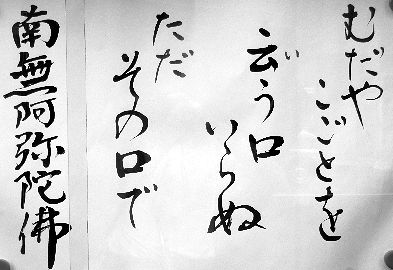 むだや
こごとを
云う口
いらぬ
ただ
その口で
南無阿弥陀佛